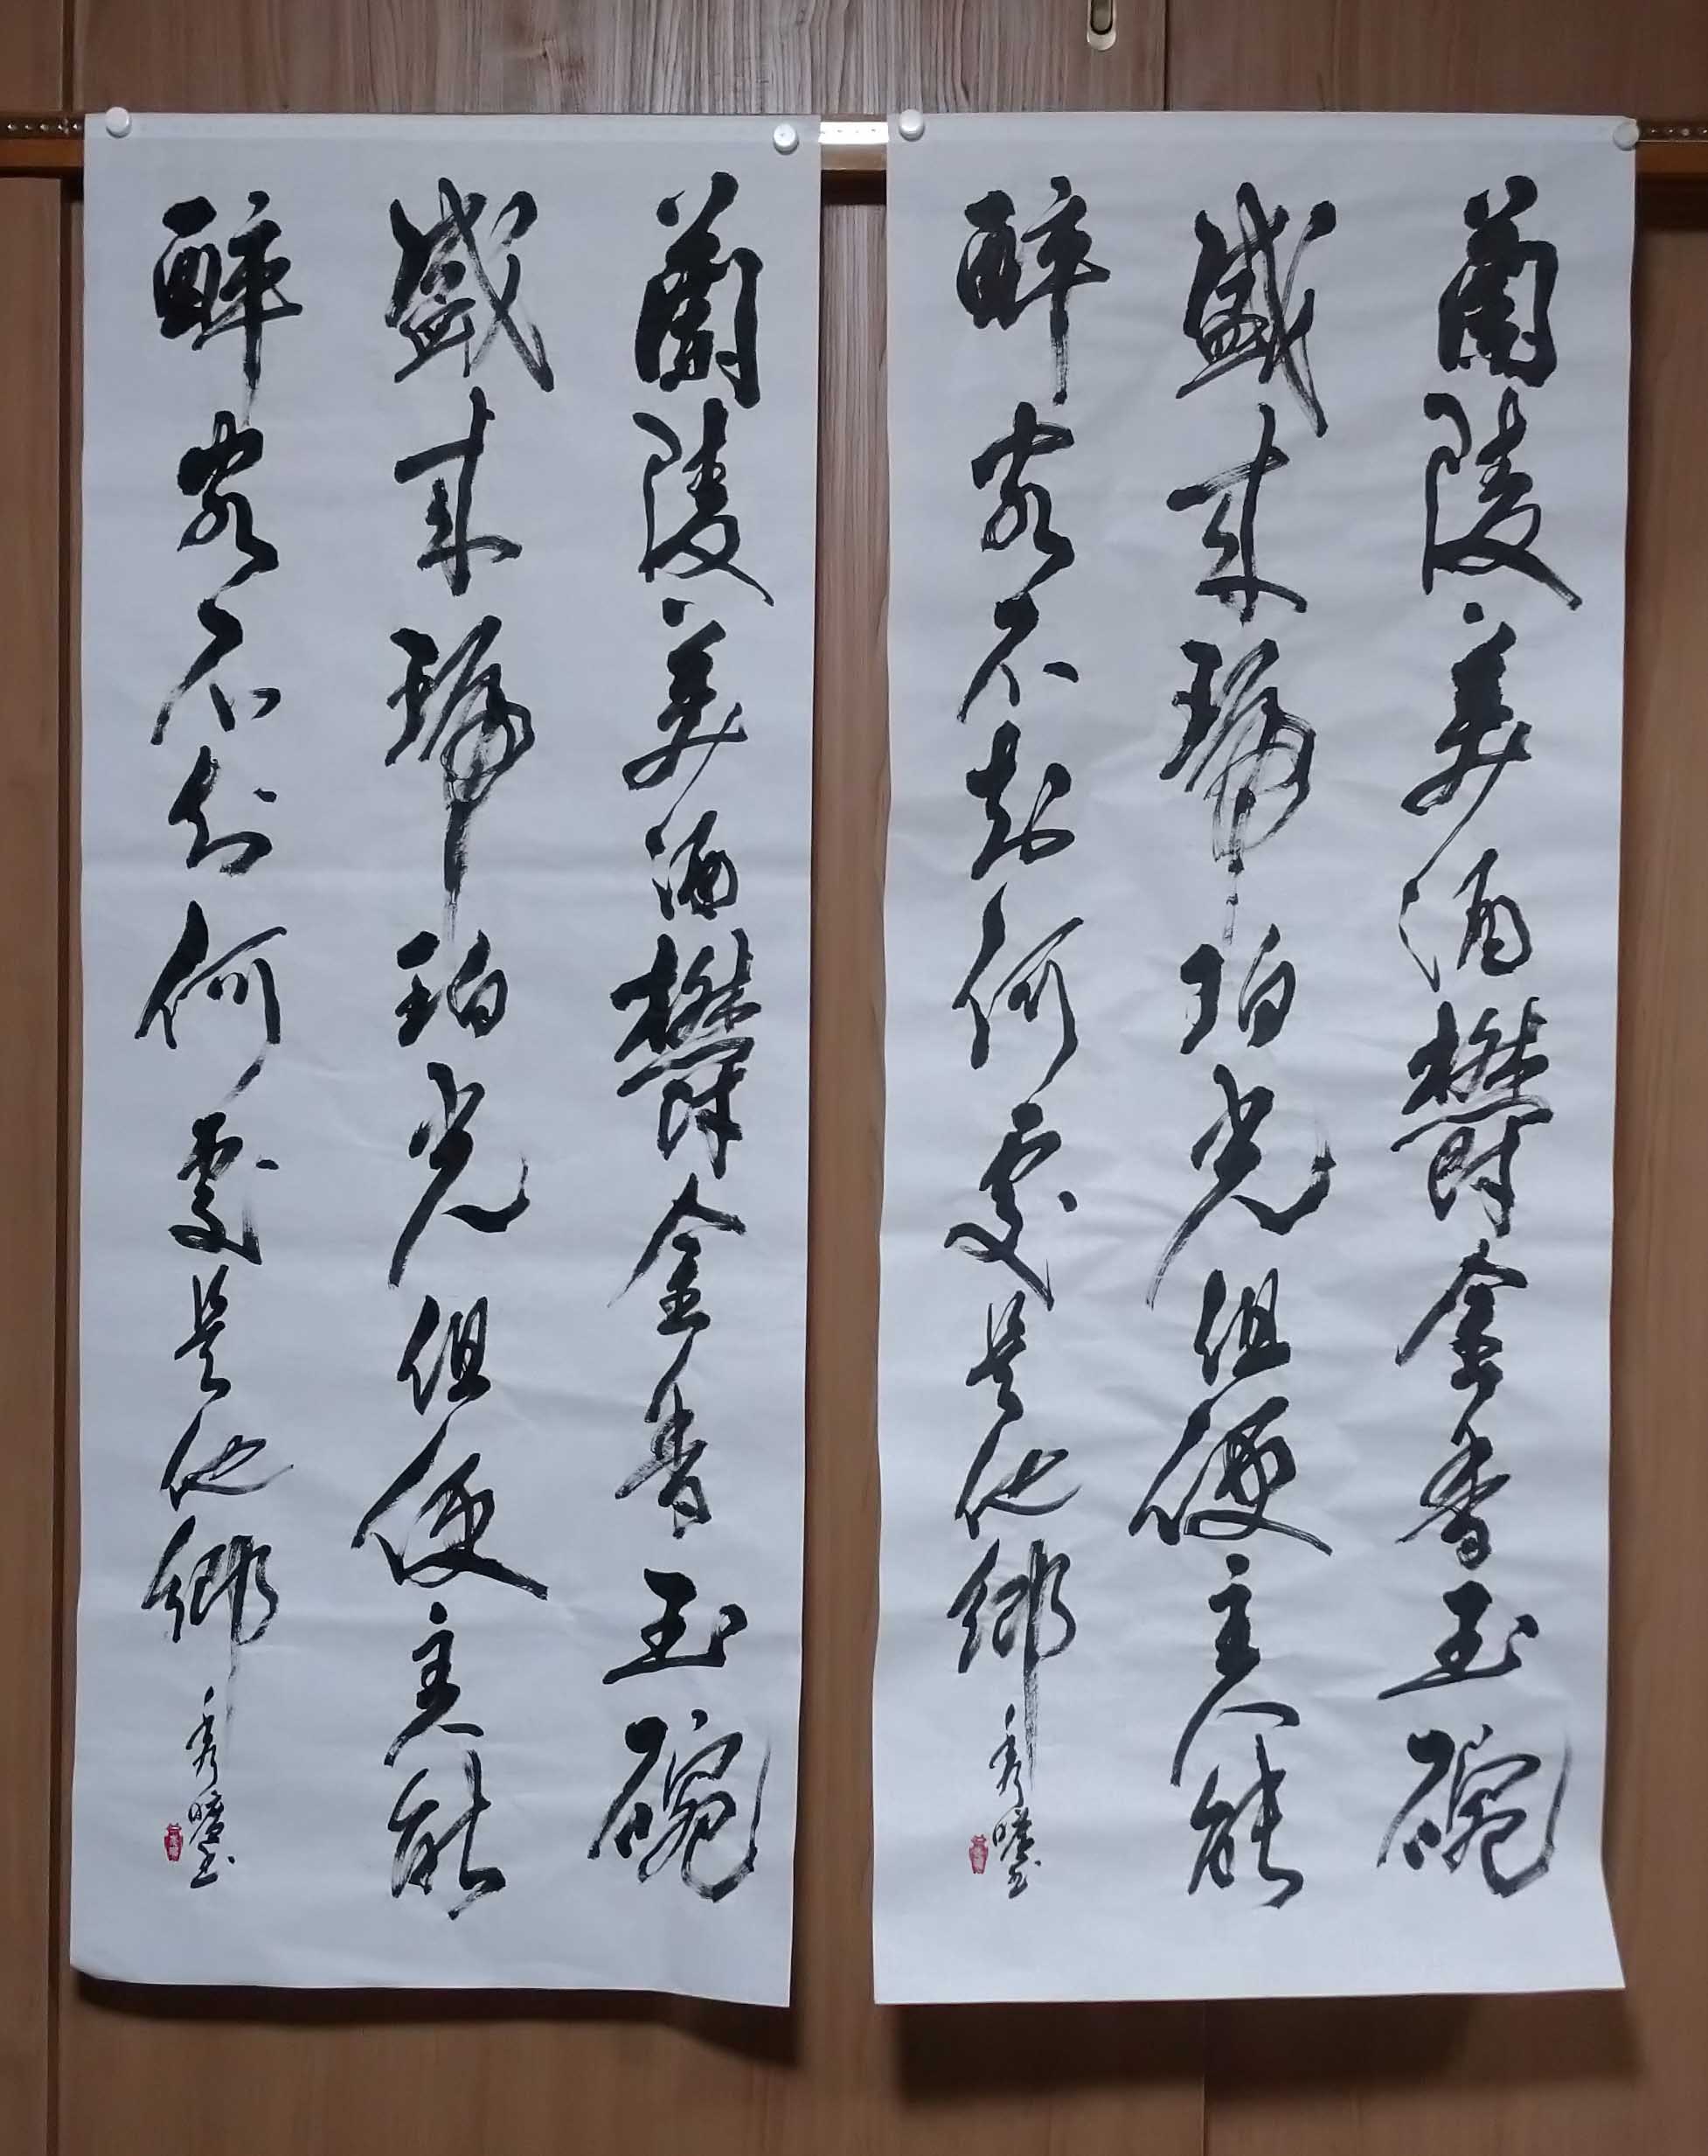 蘭陵美酒欝金香玉碗
盛来琥珀光但使主人能
醉客不知何處是他郷
蘭陵美酒欝金香玉碗
盛来琥珀光但使主人能
醉客不知何處是他郷